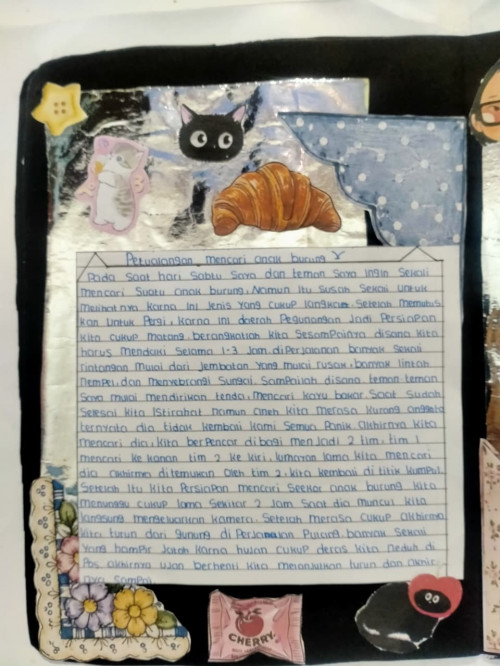 Petualangan mencari anak burung
Pada Saat hari Sabtu Saya dan teman Saya ingin Sekali
mencari Suatu anak burung. Namun itu susah Sekali untuk
melihatnya karna ini Jenis yang cukup langka. Setelah memutus
kan untuk Pergi, karna ini daerah Pegunungan Jadi Persiapan
kita cukup matang. berangkatlah kita Sesampainya disana kita
harus mendaki Selama 1-3 Jam. diPerjalanan banyak Sekali
rintangan mulai dari Jembatan yang mulai rusak, banyak lintah
nempel, dan menyebrangi Sungai. Sampailah disana teman-teman
Saya mulai mendirikan tenda, mencari kayu bakar. Saat Sudah
Selesai kita istirahat namun aneh kita merasa kurang anggota
ternyata dia tidak kembali kami Semua Panik akhirnya kita
mencari dia, kita berPencar di bagi menJadi 2 tim, tim 1
mencari ke kanan tim 2 ke kiri, lumayan lama kita mencari
dia akhirnya ditemukan oleh tim 2, kita kembali di titik kumpul.
Setelah itu kita Persiapan mencari Seekor anak burung kita
menunggu cukup lama Sekitar 2 Jam Saat dia muncul kita
langsung mengeluarkan kamera. Setelah merasa cukup akhirnya
kita turun dari gunung di Perjalanan Pulang banyak Sekali
Yang hampir Jatoh karna hujan cukup deras kita neduh di
Pos akhirnya ujan berhenti kita melanjutkan turun dan akhir-
nya Sampai.
CHERRY